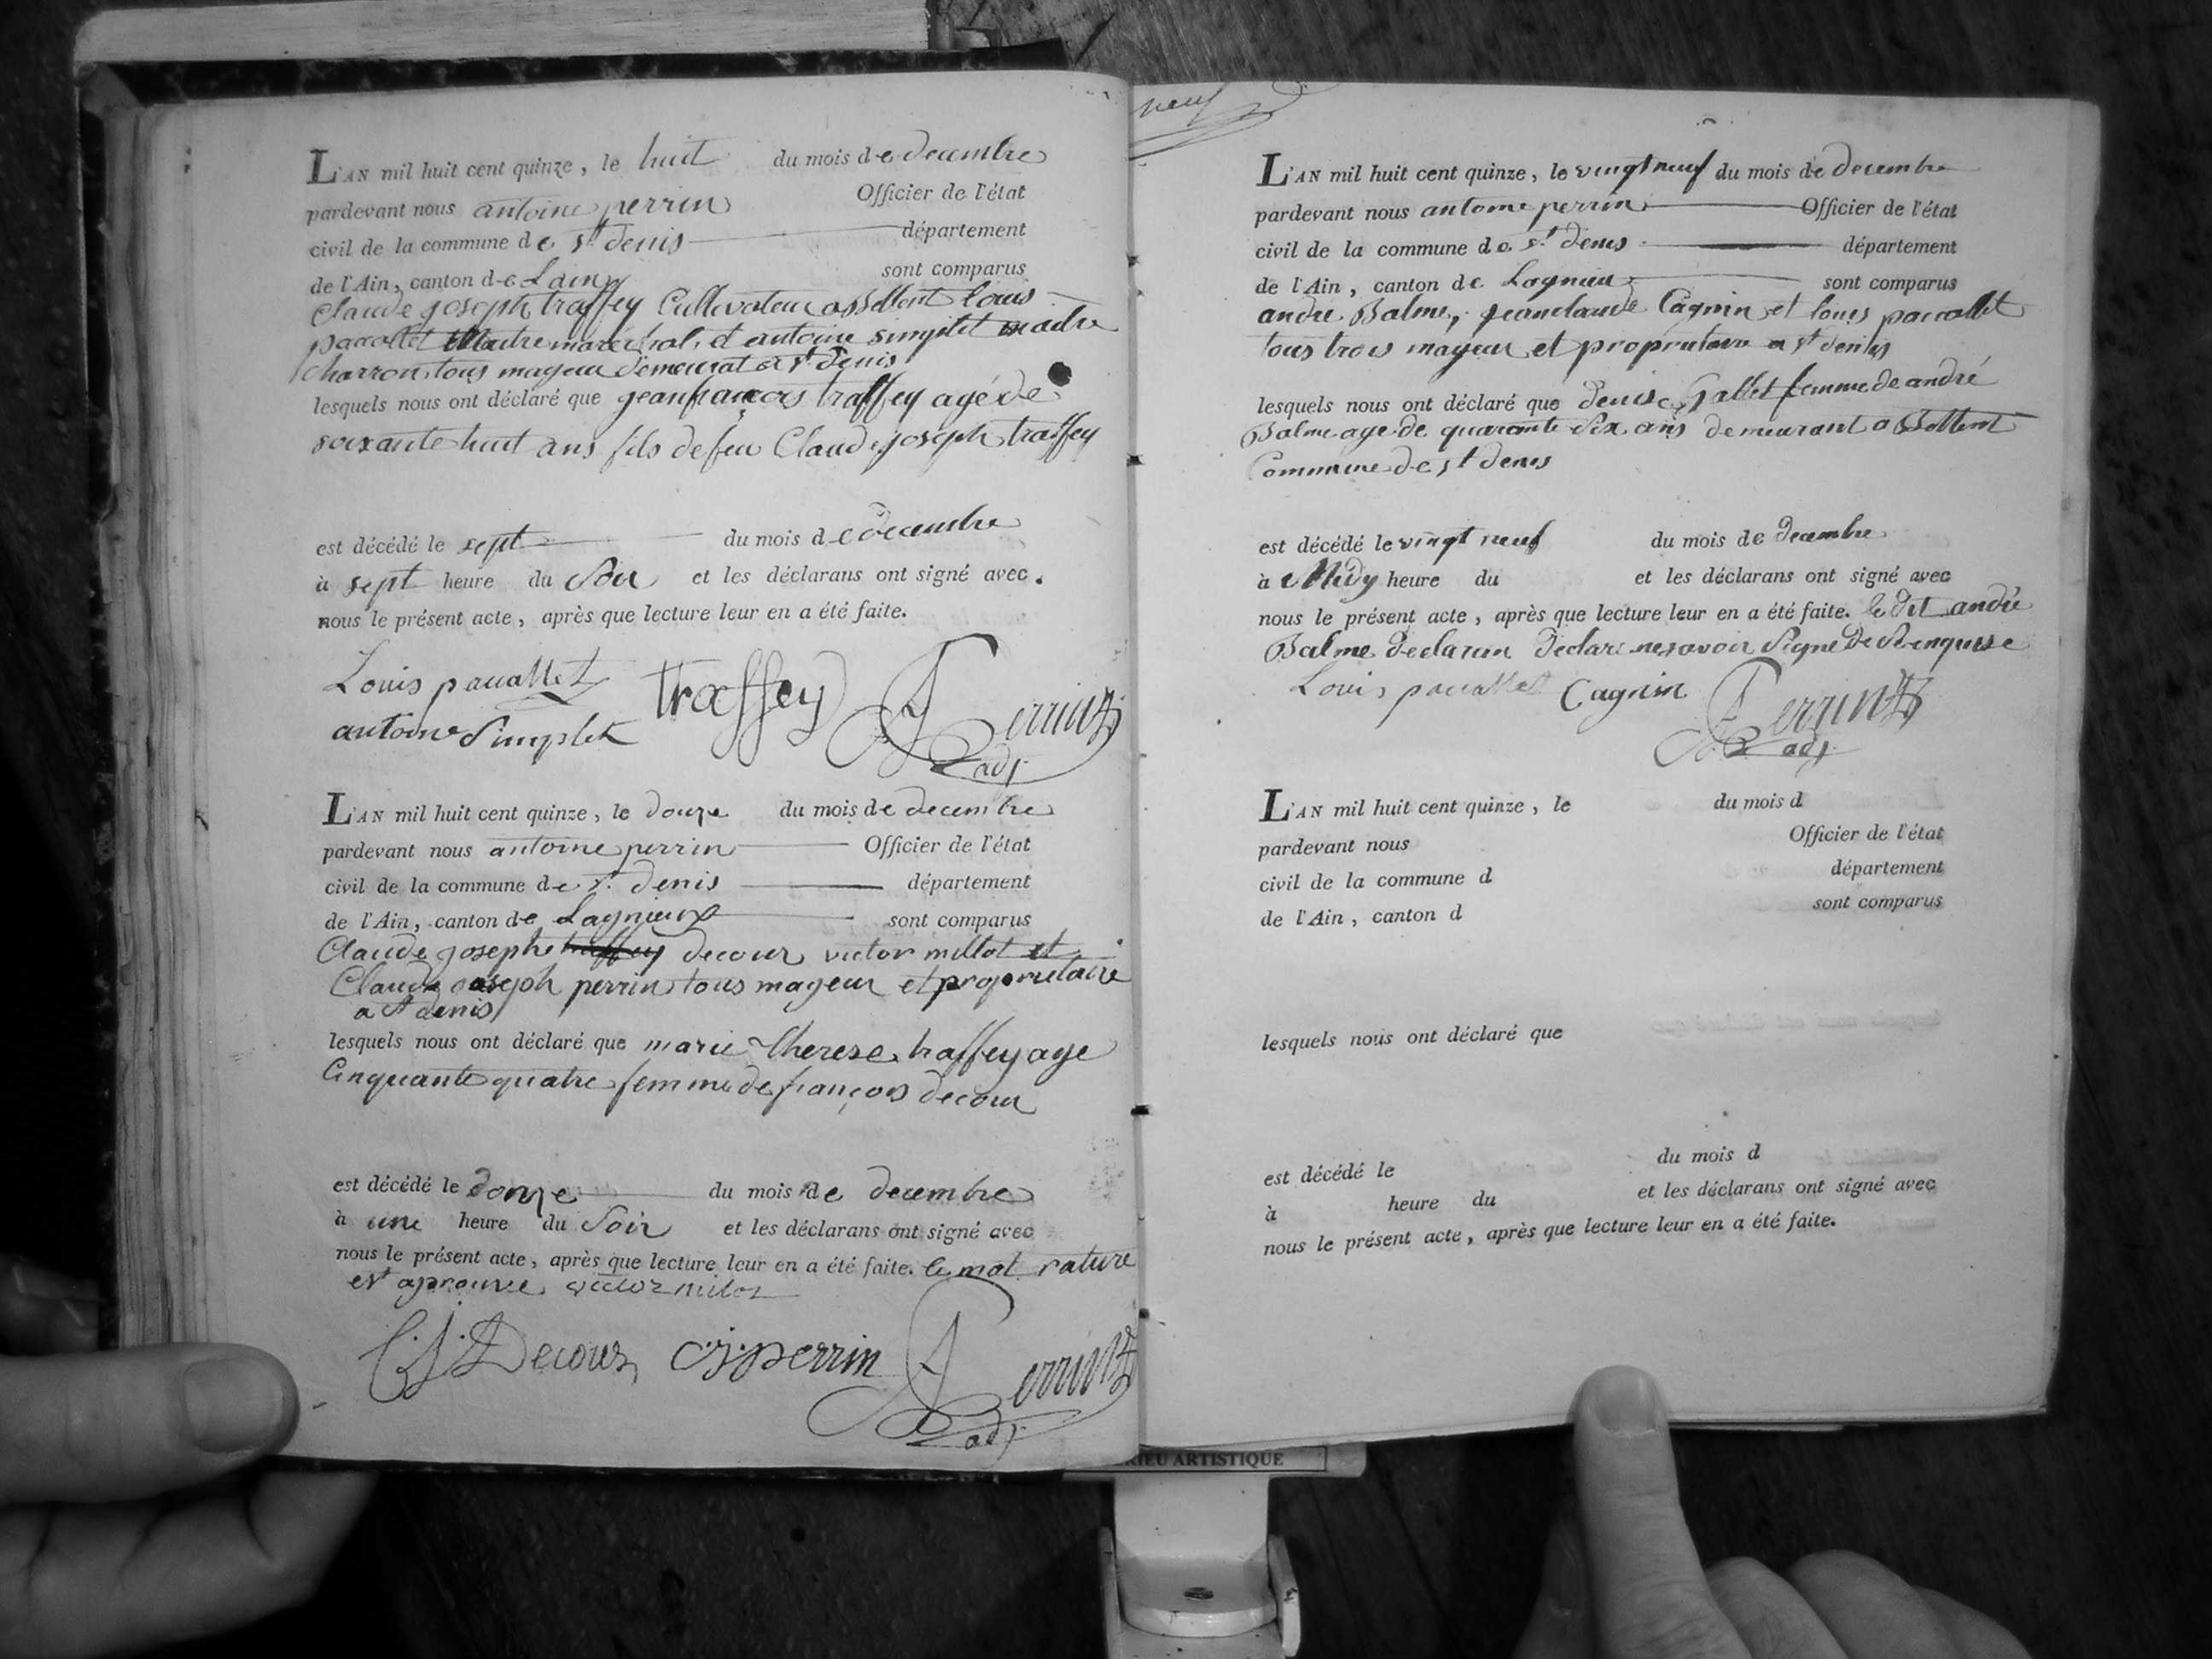 L'AN mil huit cent quinze, le huit du mois de decembre
pardevant nous antoine perrin Officier de l'état
civil de la commune de st denis département
de l'Ain, canton de Lain sont comparus
Claude joseph traffey Cultivateur a Settent louis
paccallet Maitre marechal, et antoine simplet maitre
charron, tous mageur demeurat a st denis
lesquels nous ont déclaré que jean françois traffey agé de
soixante huit ans fils de feu Claude joseph traffey
est décédé le sept du mois de decembre
à sept heure du Soir et les déclarans ont signé avec
nous le présent acte, après que lecture leur en a été faite.
Louis paccallet traffey A Perrin
antoine Simplet adj.
L'AN mil huit cent quinze, le douze du mois de decembre
pardevant nous antoine perrin Officier de l'état
civil de la commune de st denis département
de l'Ain, canton de Lagnieux sont comparus
Claude joseph traffey decour victor millot et
Claude joseph perrin tous mageur et proprietaire
a st denis
lesquels nous ont déclaré que marie therese traffey age
Cinquante quatre femme de françois decour
est décédé le douze du mois de decembre
à une heure du Soir et les déclarans ont signé avec
nous le présent acte, après que lecture leur en a été faite. le mot rature
est aprouve victor milot
C. J. Decour C. j. perrin A Perrin
adj
neuf
L'AN mil huit cent quinze, le vingt neuf du mois de decembre
pardevant nous antoine perrin Officier de l'état
civil de la commune de st denis département
de l'Ain, canton de Lagnieu sont comparus
andré Balme, jean claude Cagnin et louis paccallet
tous trois mageur et proprietaire a st denis
lesquels nous ont déclaré que denise Gallet femme de andré
Balme age de quarante Six ans demeurant a Settent
Commune de st denis
est décédé le vingt neuf du mois de decembre
à Midy heure du et les déclarans ont signé avec
nous le présent acte, après que lecture leur en a été faite. le dit andré
Balme declaran declare ne savoir Signe de Se enquisse
Louis paccallet Cagnin A Perrin
adj.
L'AN mil huit cent quinze, le du mois d
pardevant nous Officier de l'état
civil de la commune d département
de l'Ain, canton d sont comparus
lesquels nous ont déclaré que
est décédé le du mois d
à heure du et les déclarans ont signé avec
nous le présent acte, après que lecture leur en a été faite.
RIEU ARTISTIQUE